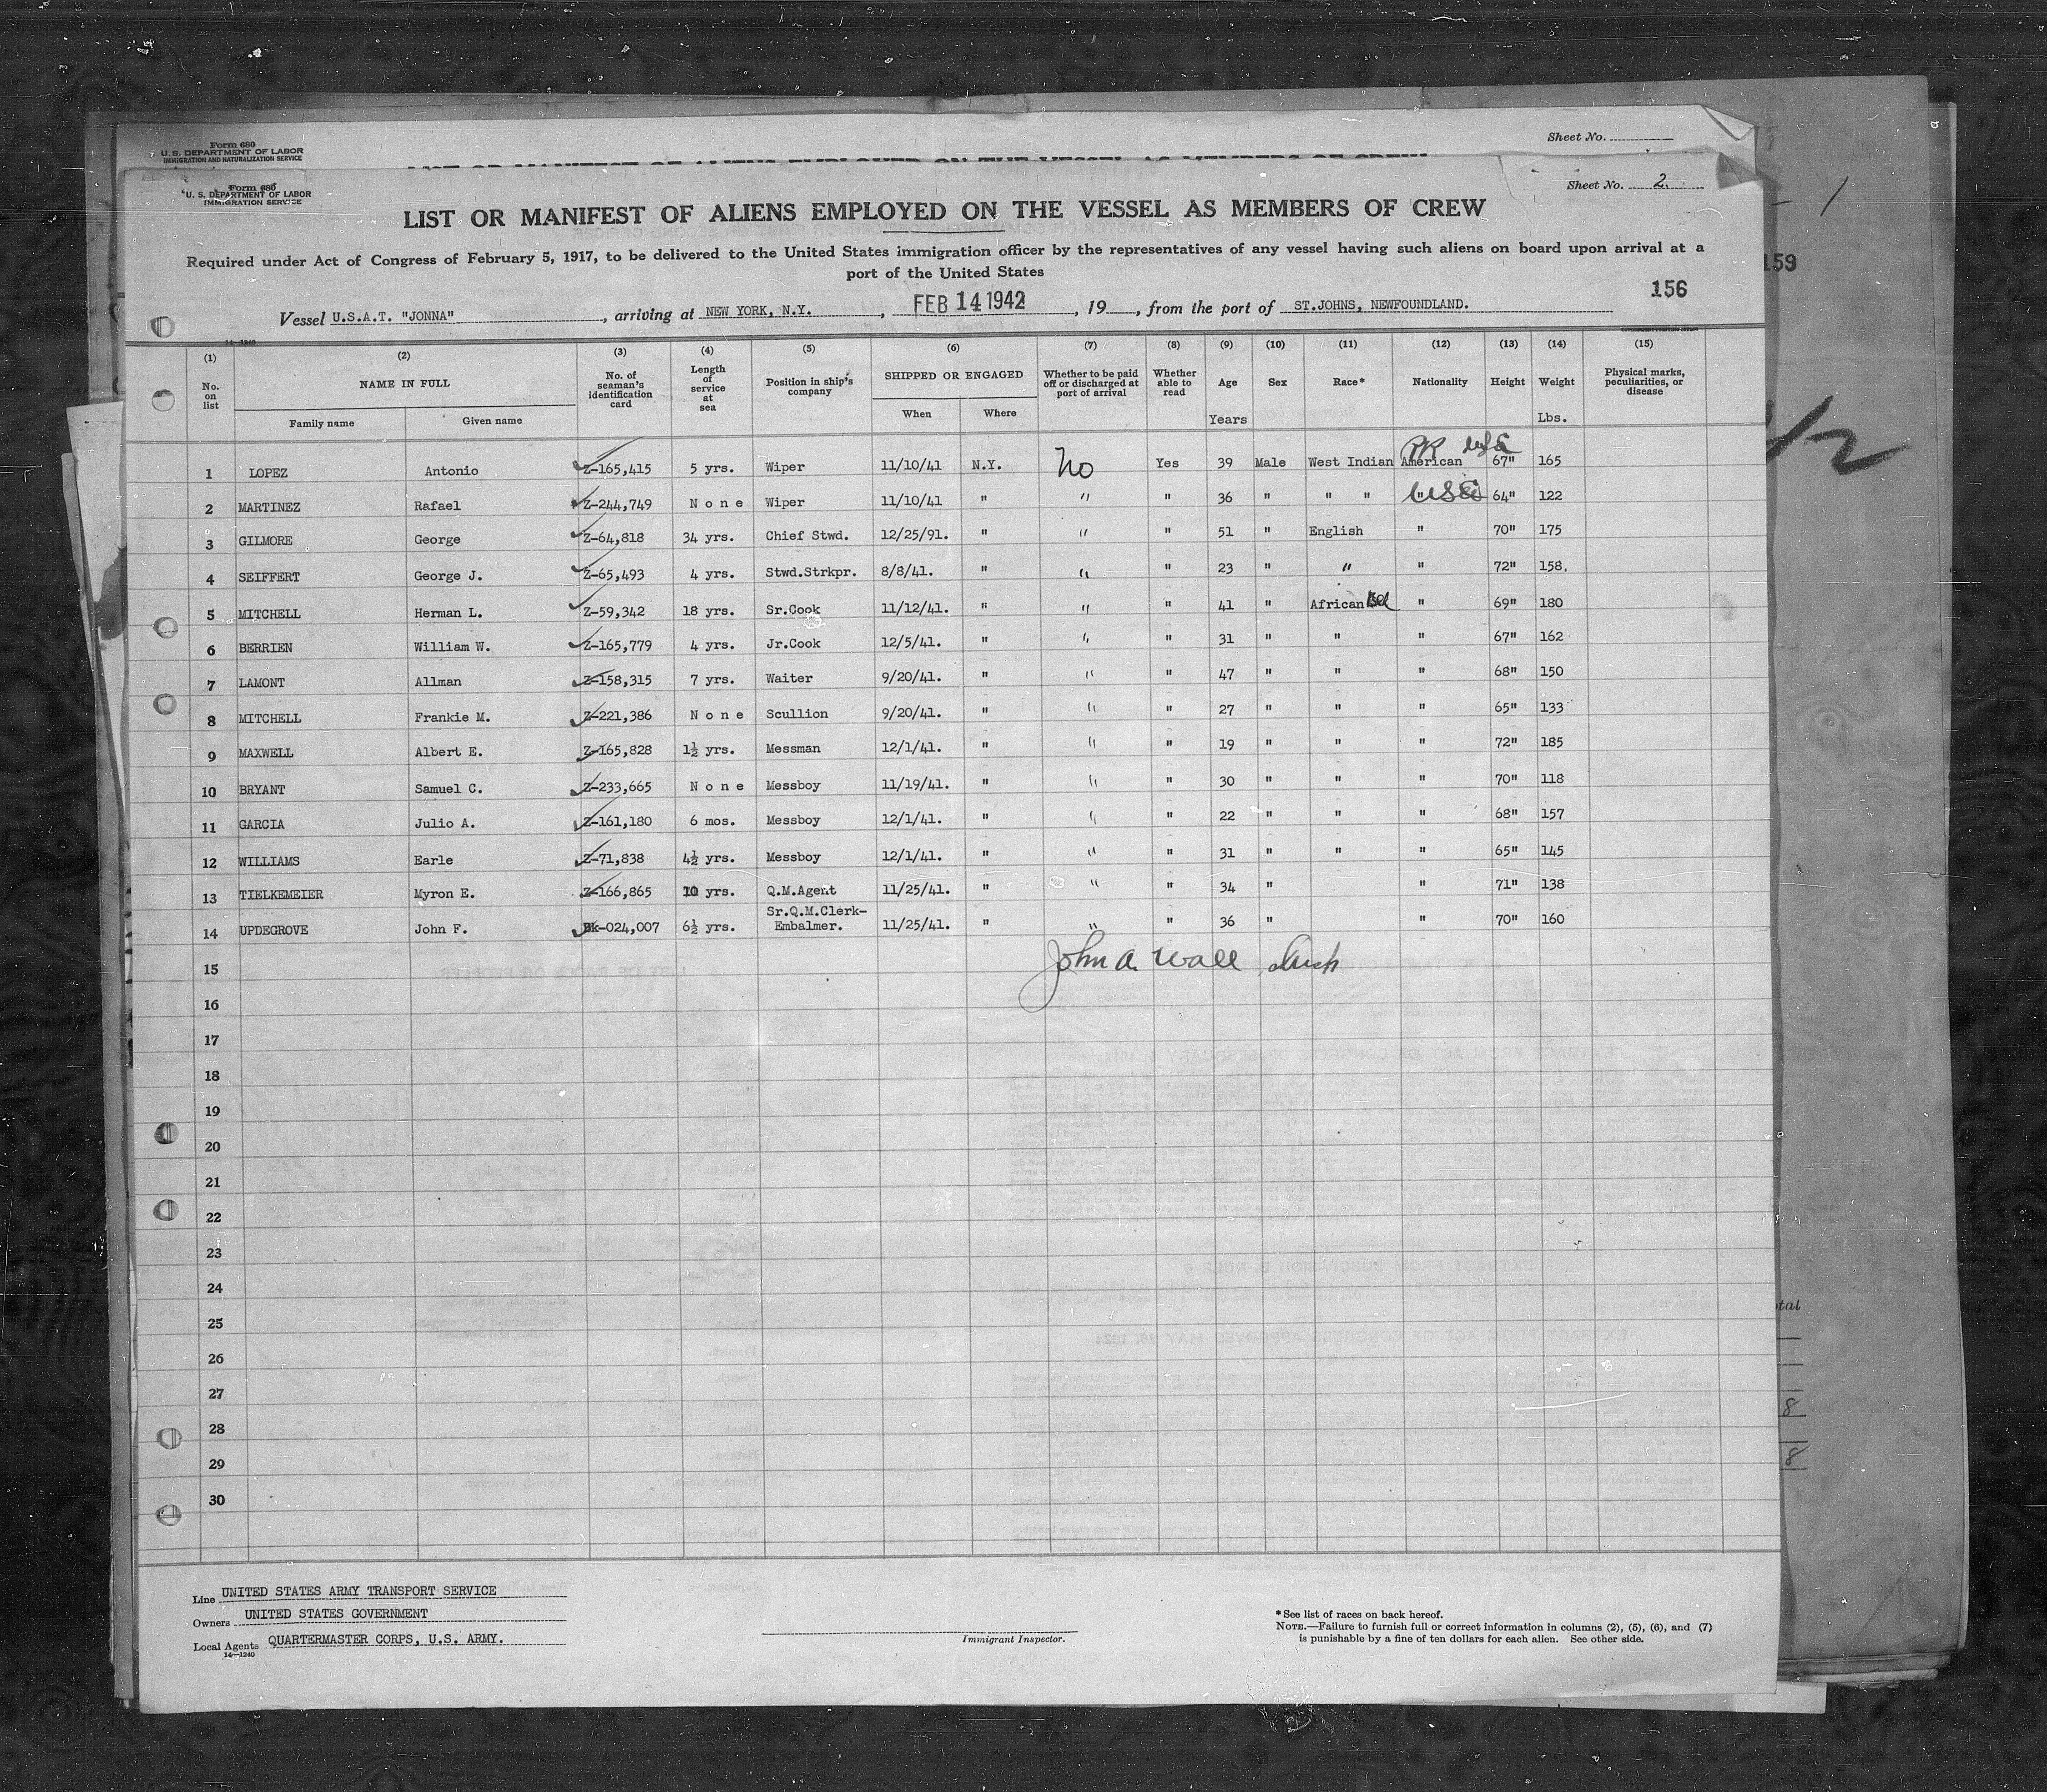 Form 680
U. S. DEPARTMENT OF LABOR
IMMIGRATION AND NATURALIZATION SERVICE
Sheet No.
Form 680
U. S. DEPARTMENT OF LABOR
IMMIGRATION SERVICE
Sheet No. 2.
LIST OR MANIFEST OF ALIENS EMPLOYED ON THE VESSEL AS MEMBERS OF CREW
Required under Act of Congress of February 5, 1917, to be delivered to the United States immigration officer by the representatives of any vessel having such aliens on board upon arrival at a
port of the United States
159
156
Vessel U.S.A.T. "JONNA", arriving at NEW YORK, N.Y., FEB 14 1942, 19, from the port of ST.JOHNS, NEWFOUNDLAND.
14—1240
(1) (2) (3) (4) (5) (6) (7) (8) (9) (10) (11) (12) (13) (14) (15)
No. on list NAME IN FULL Family name Given name No. of seaman's identification card Length of service at sea Position in ship's company SHIPPED OR ENGAGED When Where Whether to be paid off or discharged at port of arrival Whether able to read Age Years Sex Race* Nationality Height Weight Lbs. Physical marks, peculiarities, or disease
PR USC
1 LOPEZ Antonio Z-165,415 5 yrs. Wiper 11/10/41 N.Y. No Yes 39 Male West Indian American 67" 165
2 MARTINEZ Rafael Z-244,749 None Wiper 11/10/41 " " " 36 " " " " USC 64" 122
3 GILMORE George Z-64,818 34 yrs. Chief Stwd. 12/25/91. " " " 51 " English " 70" 175
4 SEIFFERT George J. Z-65,493 4 yrs. Stwd.Strkpr. 8/8/41. " " " 23 " " " 72" 158.
5 MITCHELL Herman L. Z-59,342 18 yrs. Sr.Cook 11/12/41. " " " 41 " African " 69" 180
6 BERRIEN William W. Z-165,779 4 yrs. Jr.Cook 12/5/41. " " " 31 " " " 67" 162
7 LAMONT Allman Z-158,315 7 yrs. Waiter 9/20/41. " " " 47 " " " 68" 150
8 MITCHELL Frankie M. Z-221,386 None Scullion 9/20/41. " " " 27 " " " 65" 133
9 MAXWELL Albert E. Z-165,828 1½ yrs. Messman 12/1/41. " " " 19 " " " 72" 185
10 BRYANT Samuel C. Z-233,665 None Messboy 11/19/41. " " " 30 " " " 70" 118
11 GARCIA Julio A. Z-161,180 6 mos. Messboy 12/1/41. " " " 22 " " " 68" 157
12 WILLIAMS Earle Z-71,838 4½ yrs. Messboy 12/1/41. " " " 31 " " " 65" 145
13 TIELKEMEIER Myron E. Z-166,865 10 yrs. Q.M.Agent 11/25/41. " " " 34 " " 71" 138
14 UPDEGROVE John F. Bk-024,007 6½ yrs. Sr.Q.M.Clerk-Embalmer. 11/25/41. " " " 36 " " 70" 160
15 John A. Wall
16
17
18
19
20
21
22
23
24
25
26
27
28
29
30
Line UNITED STATES ARMY TRANSPORT SERVICE
Owners UNITED STATES GOVERNMENT
Local Agents QUARTERMASTER CORPS, U.S. ARMY.
14—1240
Immigrant Inspector.
*See list of races on back hereof.
NOTE.—Failure to furnish full or correct information in columns (2), (5), (6), and (7)
is punishable by a fine of ten dollars for each alien. See other side.
8
8